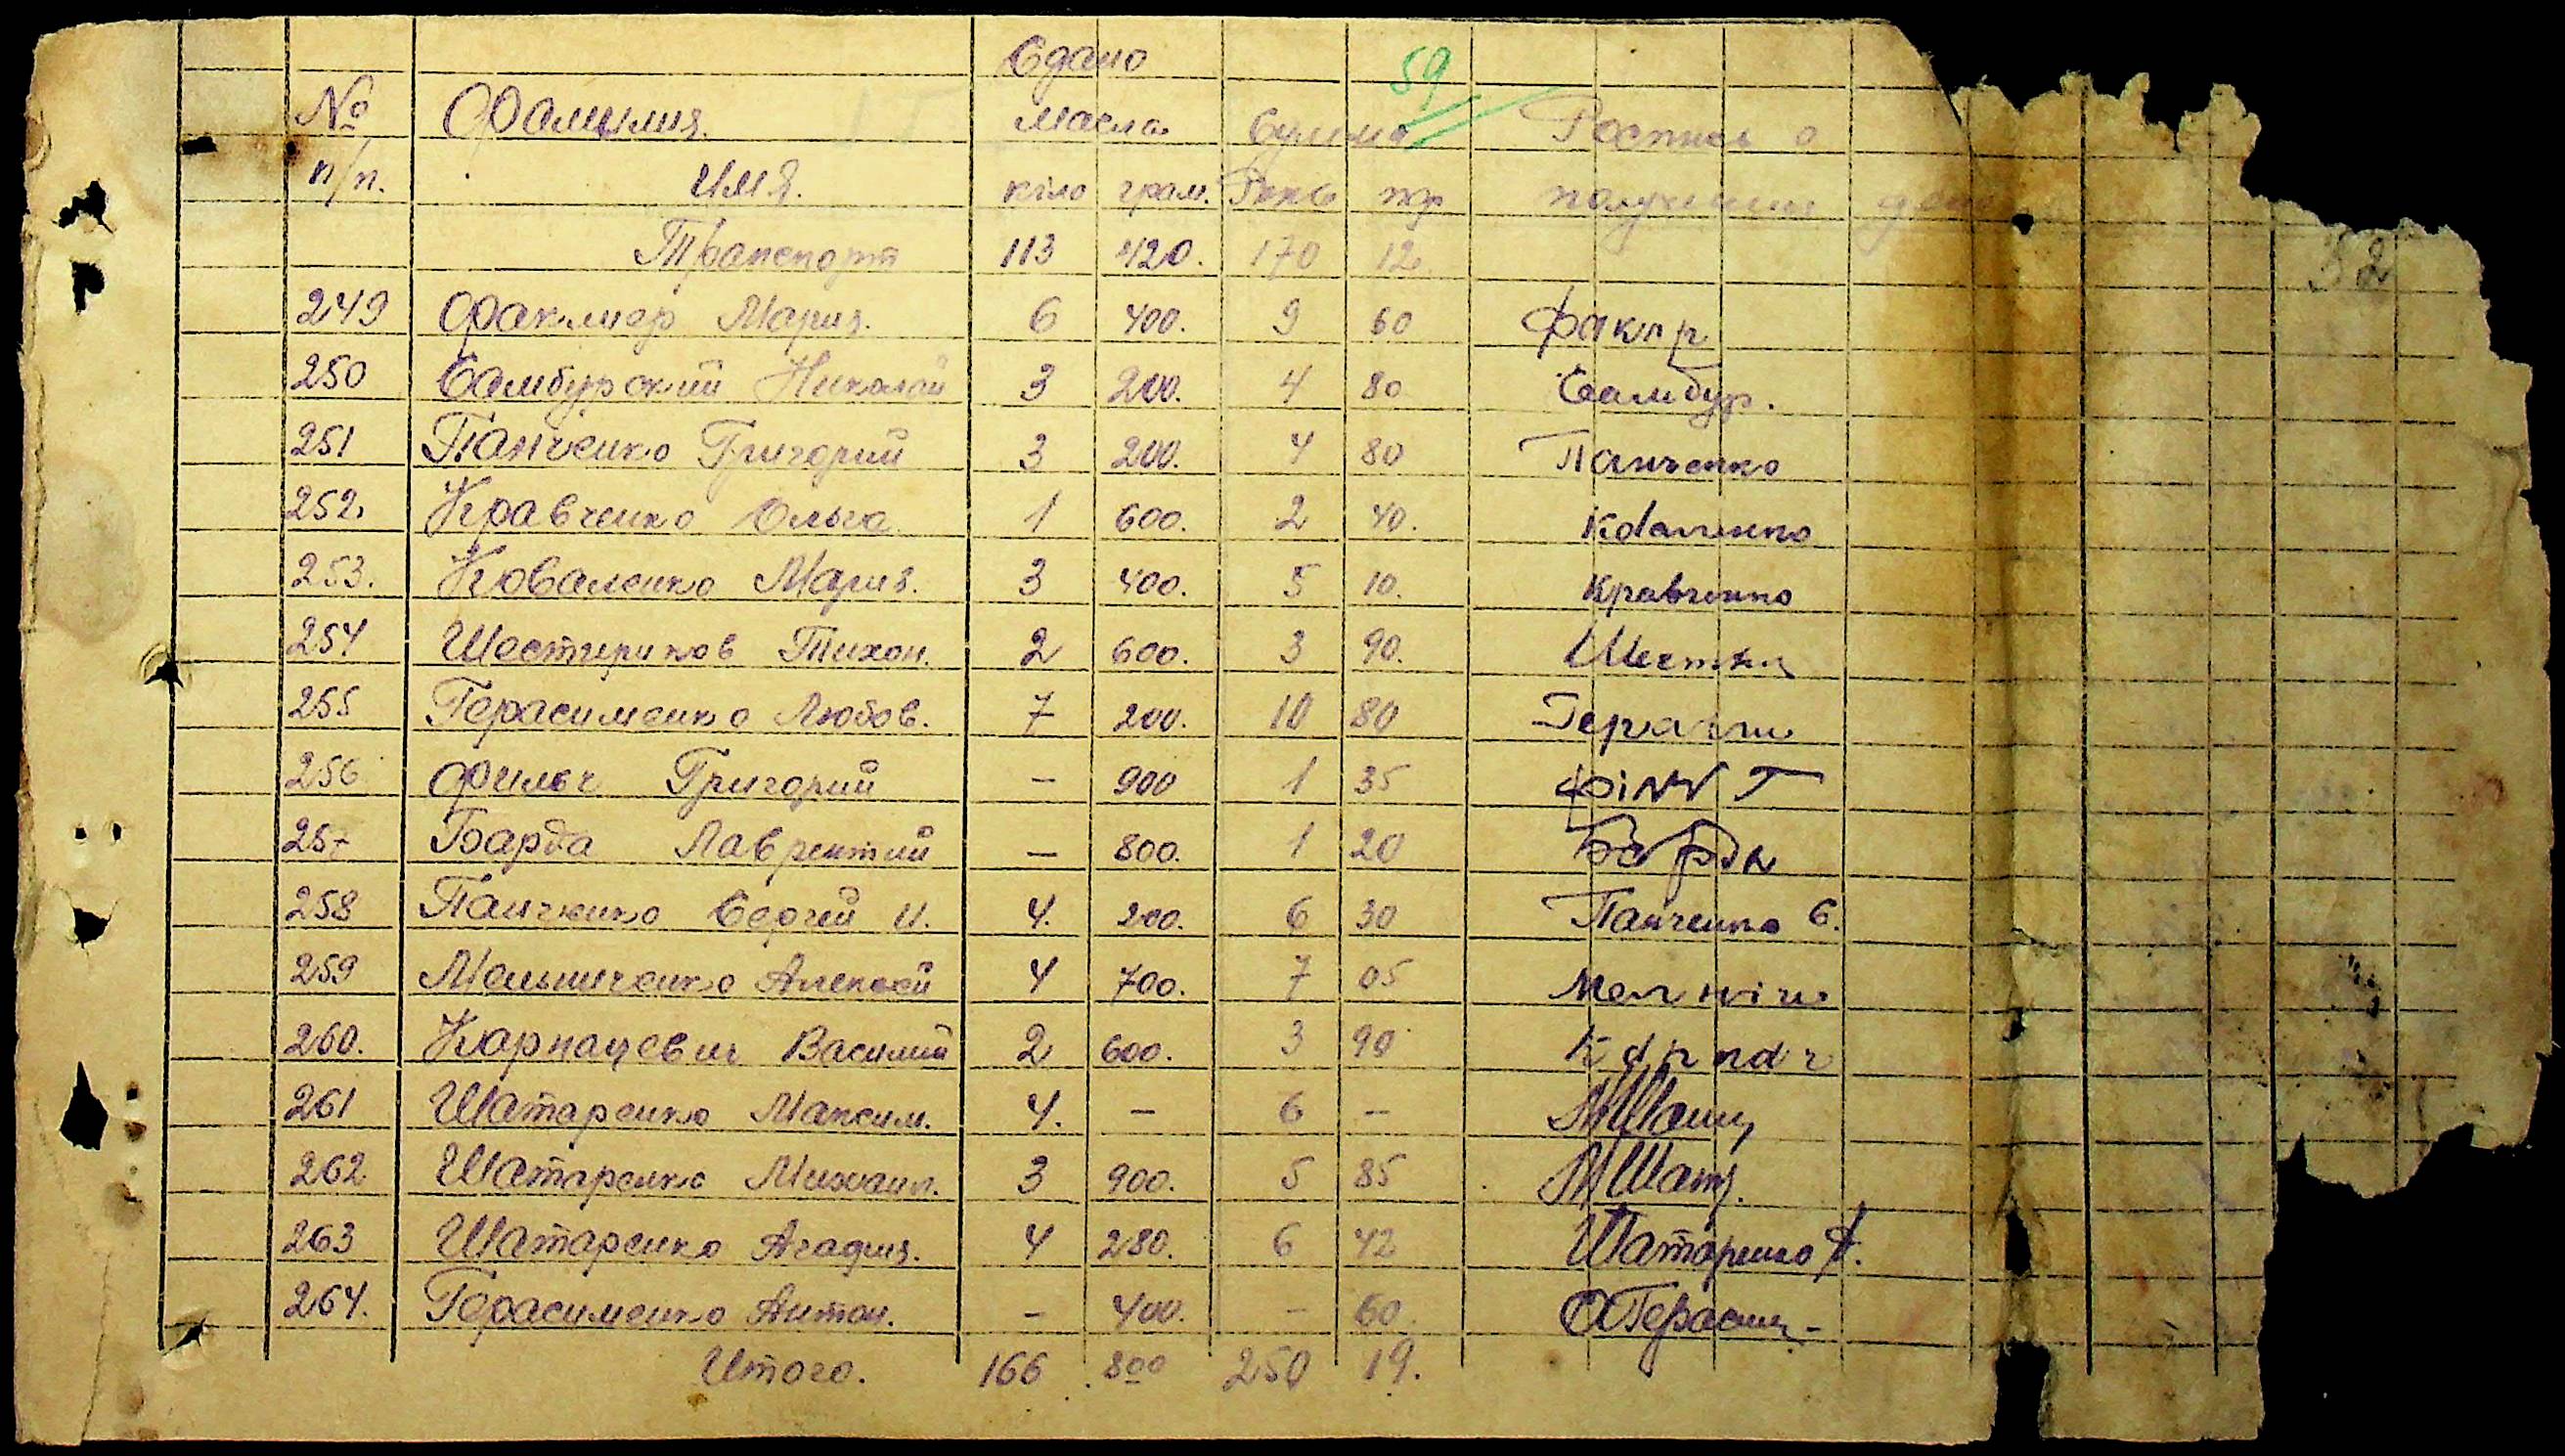 Сдано
59
№ Фамилия Масла Сумма Роспись о
п/п. имя. кіло грам. Ркм пф получении ден
Транспорт 113 420. 170 12
52
249 Факлиер Мария. 6 400. 9 60 Факлр
250 Самбурский Николай 3 200. 4 80 Самбур.
251 Панченко Григорий 3 200. 4 80 Панченко
252. Кравченко Ольга 1 600. 2 40. Коваленко
253. Коваленко Мария. 3 400. 5 10. Кравченко
254 Шестериков Тихон. 2 600. 3 90.
255 Герасименко Любов. 7 200. 10 80 Герасим
256 Фильч Григорий – 900 1 35
257 Барда Лаврентий – 800. 1 20 Барда
258 Панченко Сергей И. 4. 200. 6 30 Панченко С.
259 Мельниченко Алексей 4 700. 7 05 Мелнич
260. Карнацевич Василий 2 600. 3 90 Карнац
261 Шатаренко Максим. 4. – 6 –
262 Шатаренко Михаил. 3 900. 5 85 МШат
263 Шатаренко Агафия. 4 280. 6 42 Шатаренко А.
264. Герасименко Антон. – 400. – 60. АГерасим
Итого. 166 800 250 19.